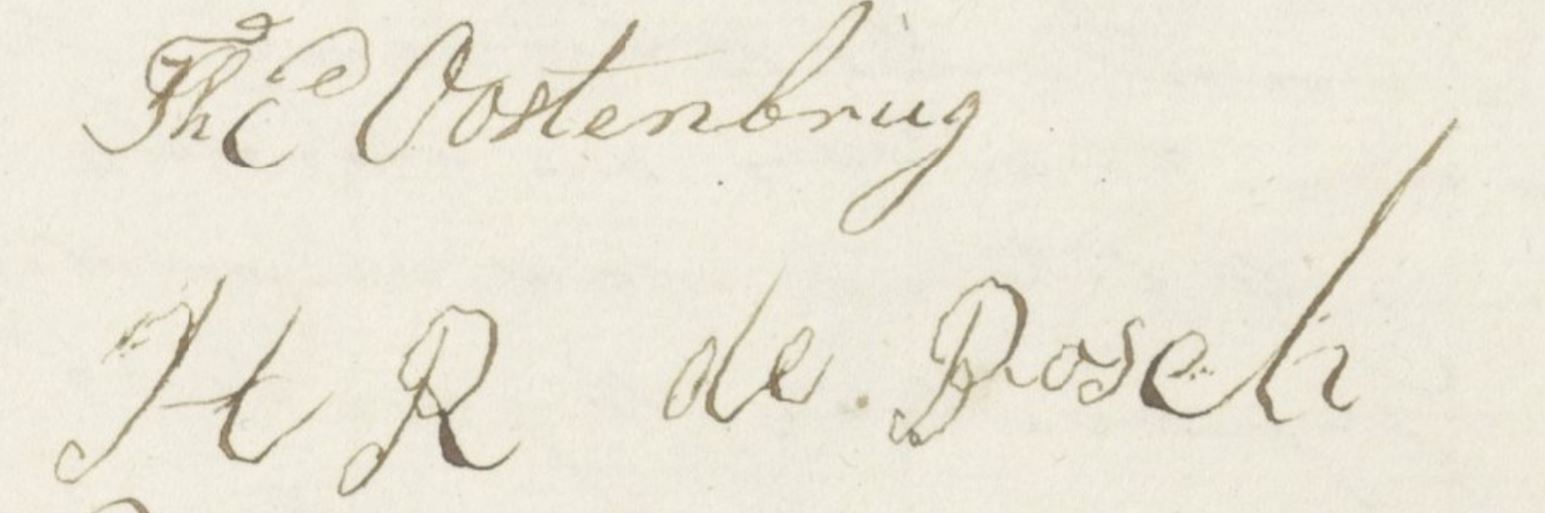 Thc Oostenbrug
H R de Bosch